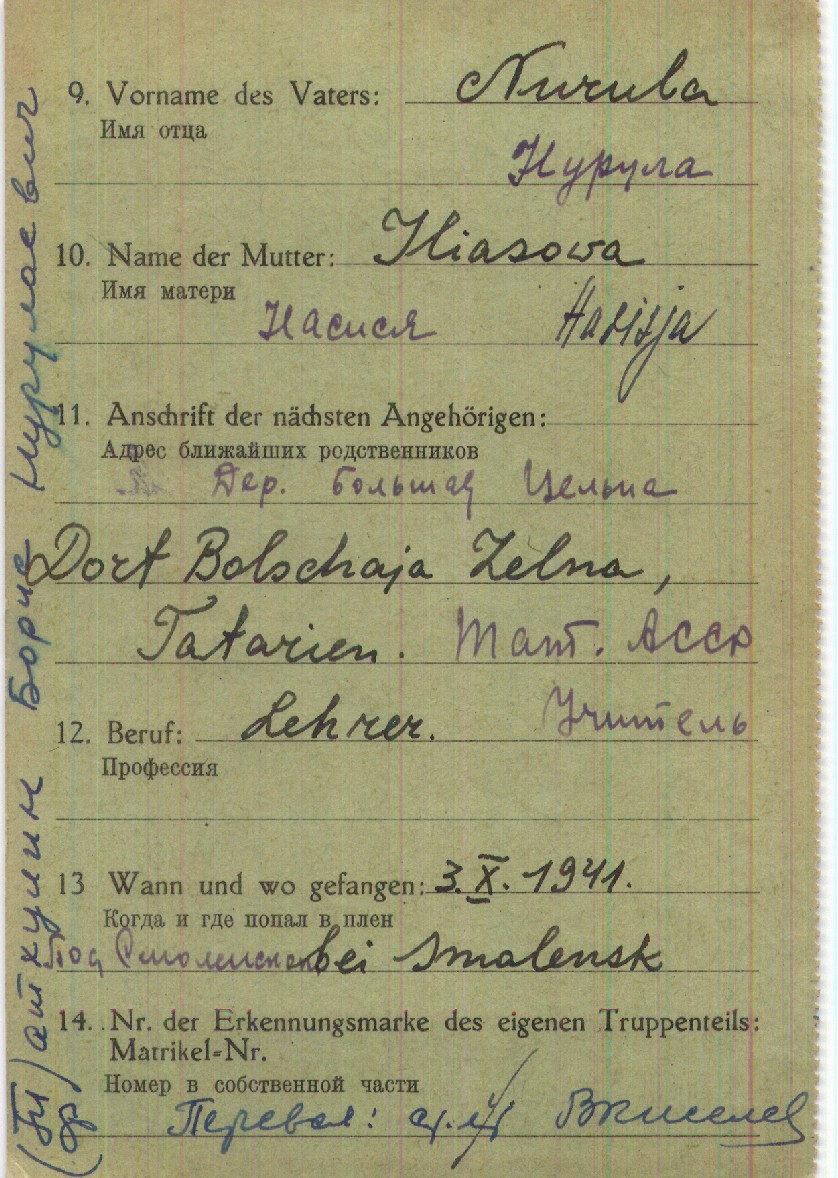 9. Vorname des Vaters: Nurula
Имя отца
Нурула
10. Name der Mutter: Iliasowa
Имя матери
Насися Hasisja
11. Anschrift der nächsten Angehörigen:
Адрес ближайших родственников
Дер. Большая Цельна
Dorf Bolschaja Zelna,
Tatarien. Тат. АССР
12. Beruf: Lehrer. Учитель
Профессия
13 Wann und wo gefangen: 3.X.1941.
Когда и где попал в плен
Под Смоленском bei Smolensk
14. Nr. der Erkennungsmarke des eigenen Truppenteils:
Matrikel-Nr.
Номер в собственной части
Перевел:
атхулин Борис Нурулаевич